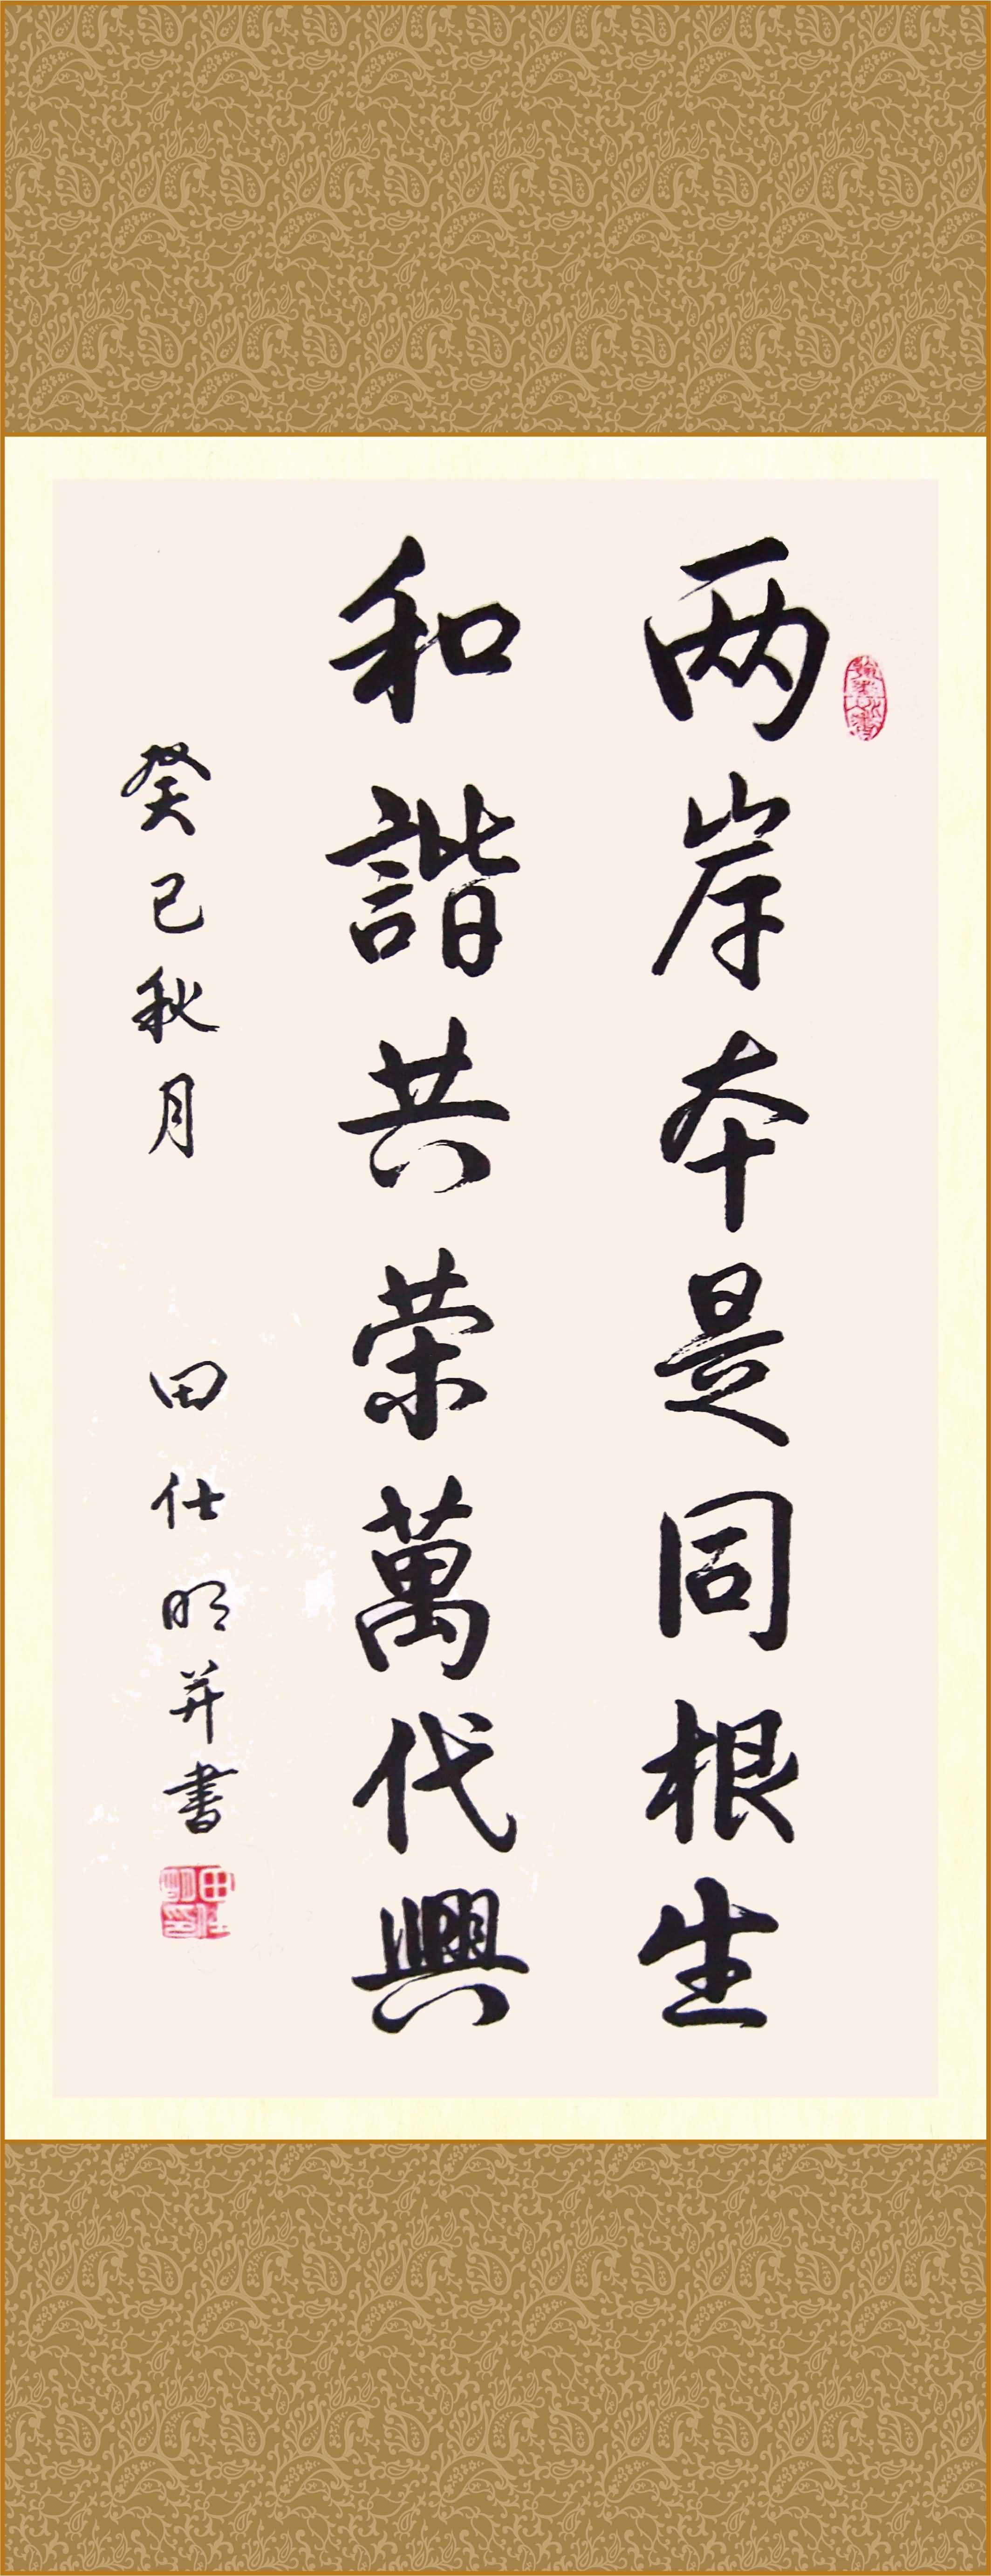 两岸本是同根生
和諧共荣萬代興
癸巳秋月 田仕明并書